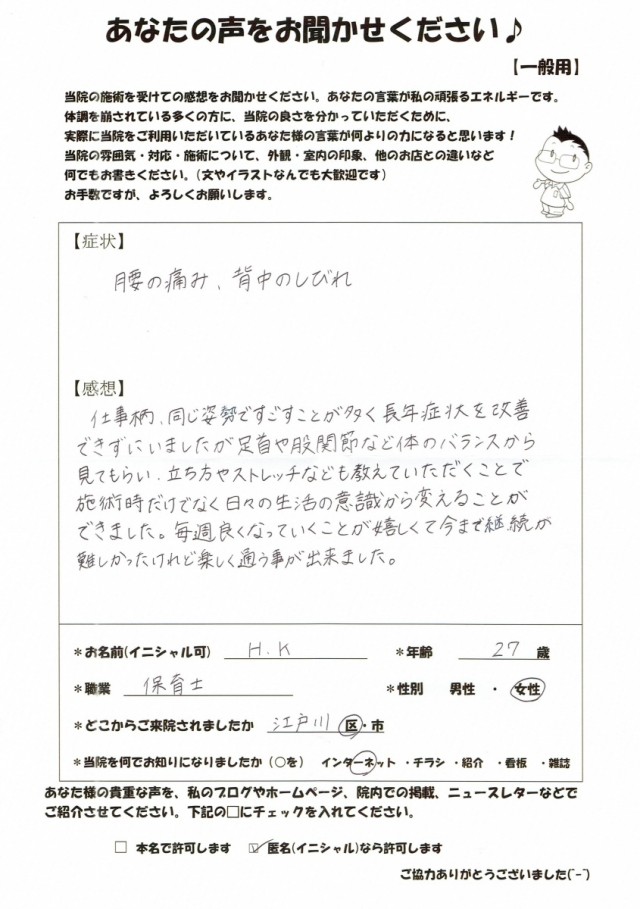 あなたの声をお聞かせください♪
【一般用】
当院の施術を受けての感想をお聞かせください。あなたの言葉が私の頑張るエネルギーです。
体調を崩されている多くの方に、当院の良さを分かっていただくために、
実際に当院をご利用いただいているあなた様の言葉が何よりの力になると思います！
当院の雰囲気・対応・施術について、外観・室内の印象、他のお店との違いなど
何でもお書きください。（文やイラストなんでも大歓迎です）
お手数ですが、よろしくお願いします。
【症状】
腰の痛み、背中のしびれ
【感想】
仕事柄、同じ姿勢ですごすことが多く長年症状を改善
できずにいましたが足首や股関節など体のバランスから
見てもらい、立ち方やストレッチなども教えていただくことで
施術時だけでなく日々の生活の意識から変えることが
できました。毎週良くなっていくことが嬉しくて今まで継続が
難しかったけれど楽しく通う事が出来ました。
＊お名前(イニシャル可) H.K ＊年齢 27 歳
＊職業 保育士 ＊性別 男性 ・ 女性
＊どこからご来院されましたか 江戸川 区・市
＊当院を何でお知りになりましたか（○を） インターネット ・チラシ ・紹介 ・看板 ・雑誌
あなた様の貴重な声を、私のブログやホームページ、院内での掲載、ニュースレターなどで
ご紹介させてください。下記の□にチェックを入れてください。
□ 本名で許可します ☑ 匿名(イニシャル)なら許可します
ご協力ありがとうございました(^-^)